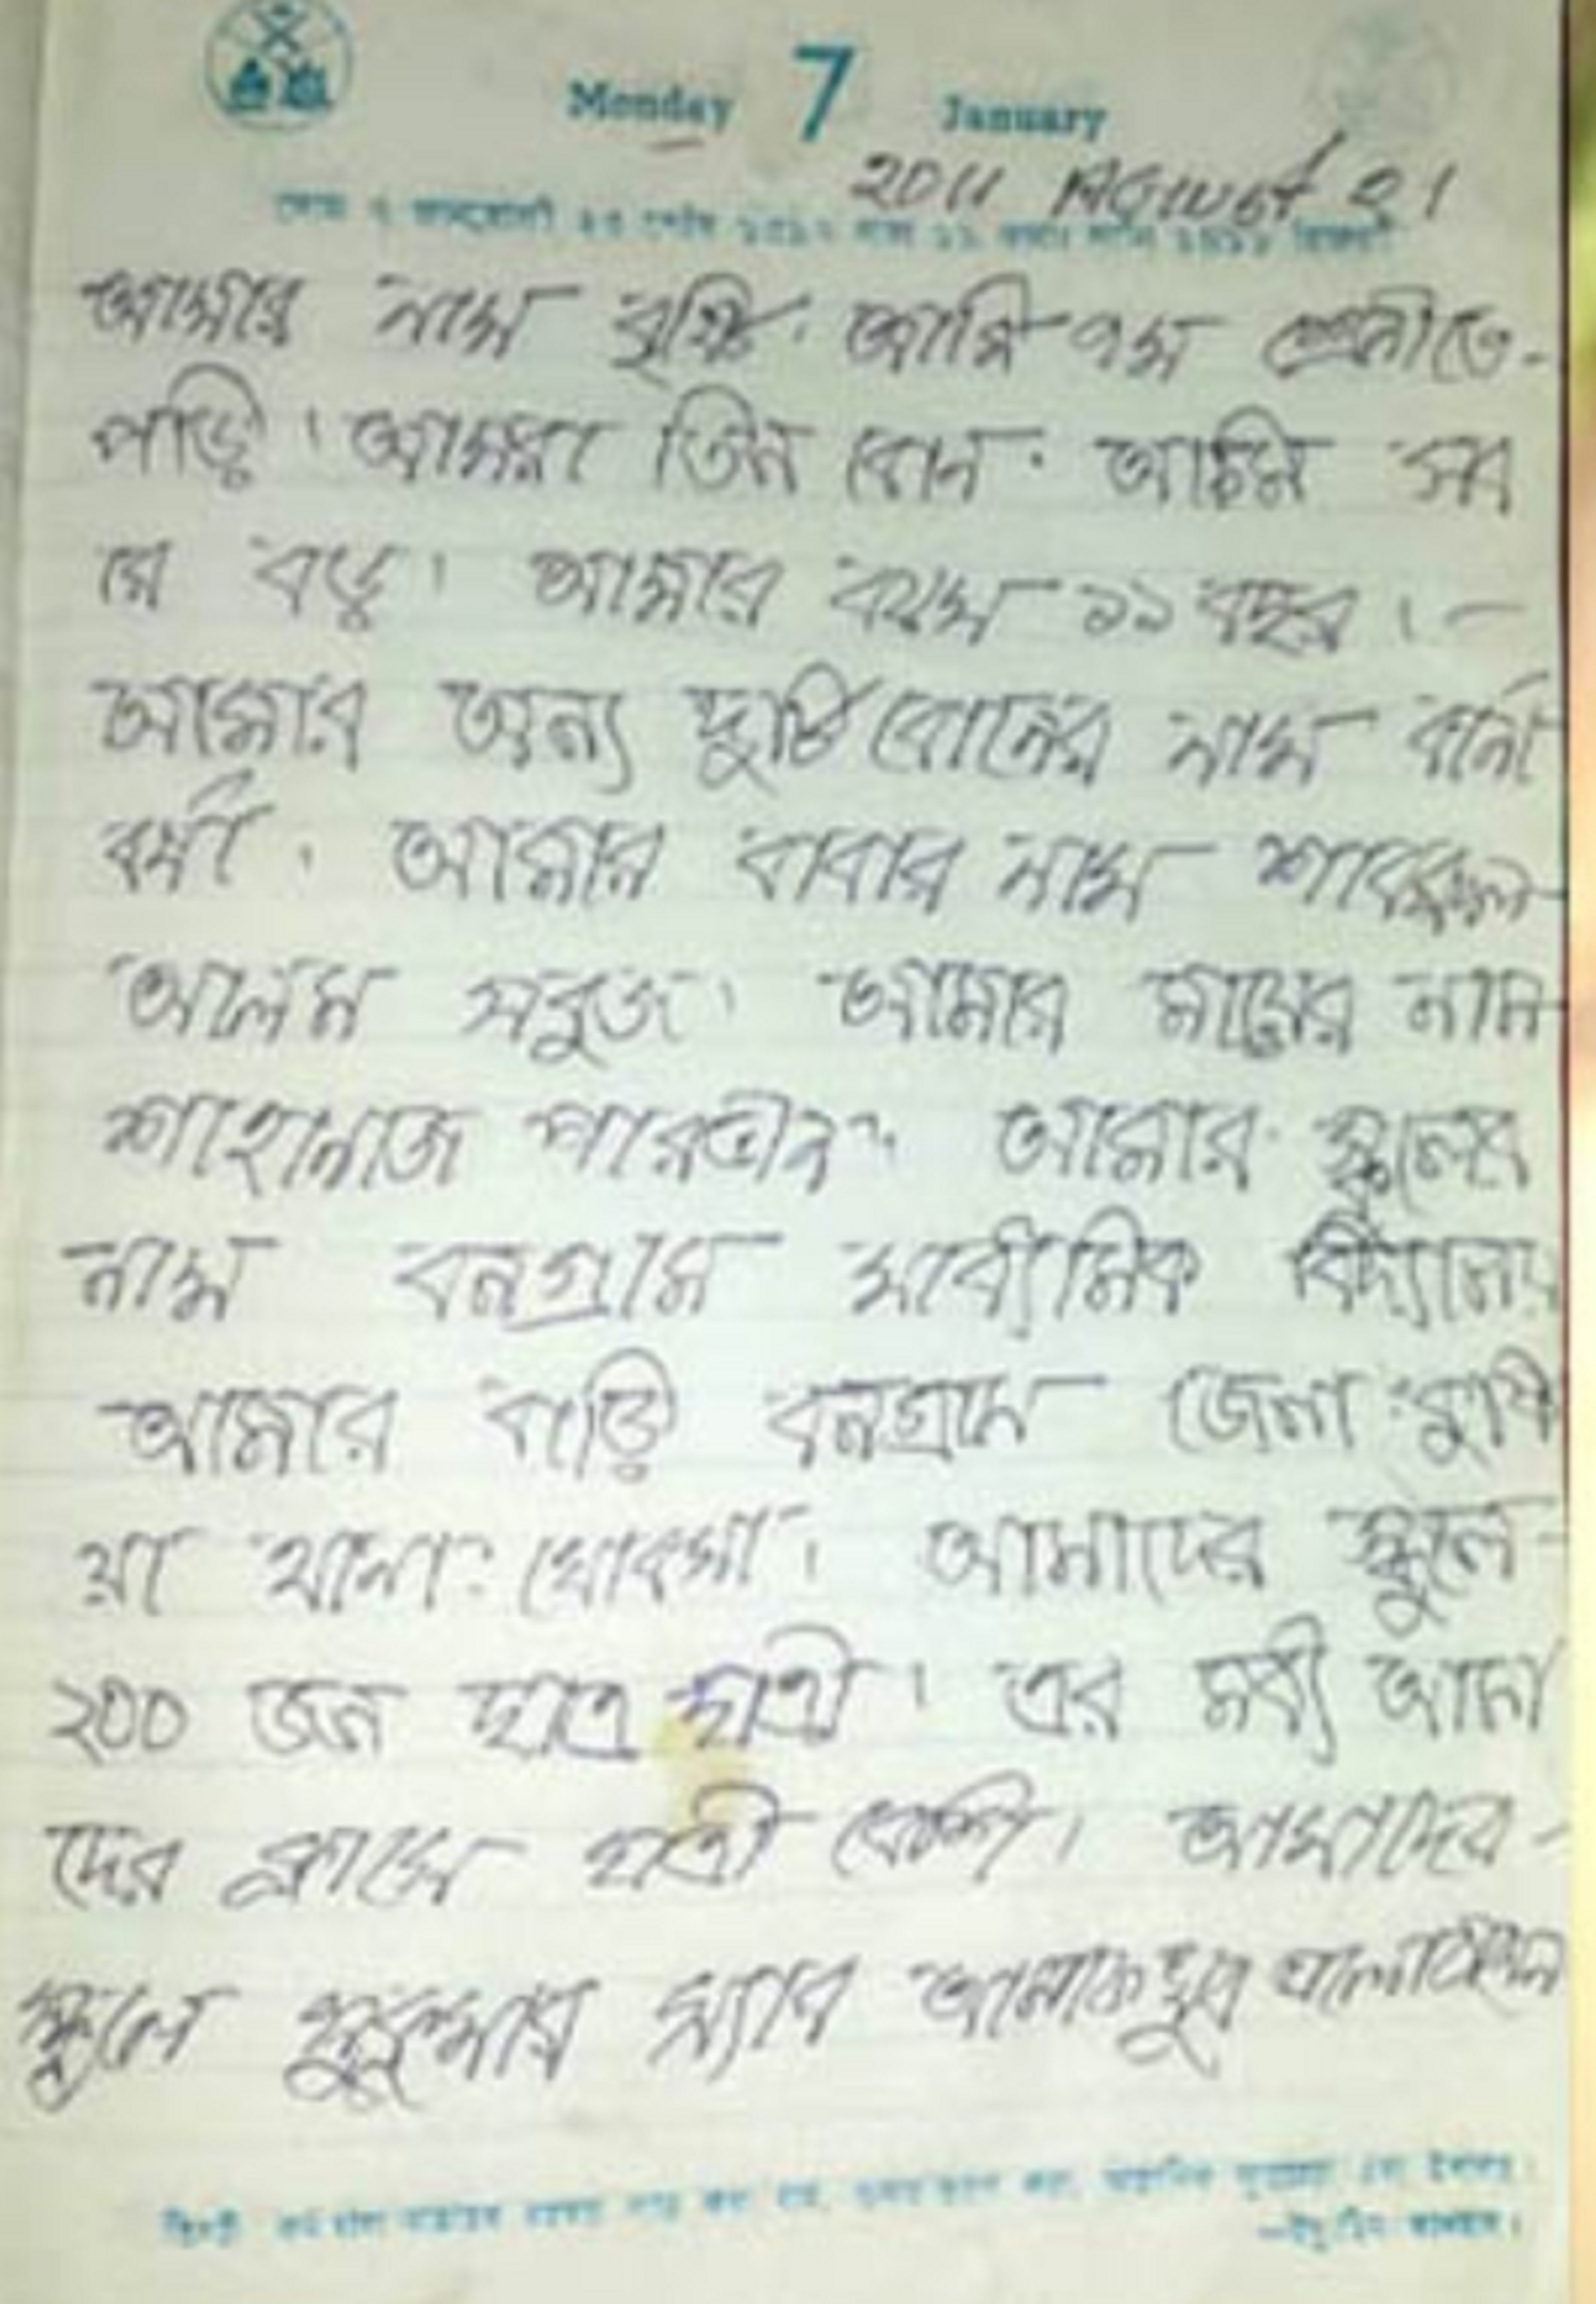 Monday 7 January
2011 August 21
আমার নাম বৃষ্টি। আমি ৭ম শ্রেনীতে-
পড়ি। আমরা তিন বোন। আমি সব
রে বড়ু। আমার বয়স ১১ বছর।-
আমার অন্য দুটি বোনের নাম বর্না
বর্সা। আমার বাবার নাম
আলম সবুজ। আমার মায়ের নাম
শাহানাজ পারভীন। আমার স্কুলের
নাম বনগ্রাম মাধ্যমিক বিদ্যালয়
আমার বাড়ি বনগ্রাম জেলা:
য়া থানা: খোকসা। আমাদের স্কুলে
২০০ জন ছাত্র ছাত্রী। এর মধ্যি আমা
দের ক্লাসে ছাত্রী বেশি। আমাদের-
স্কুলে সুকুমার স্যার